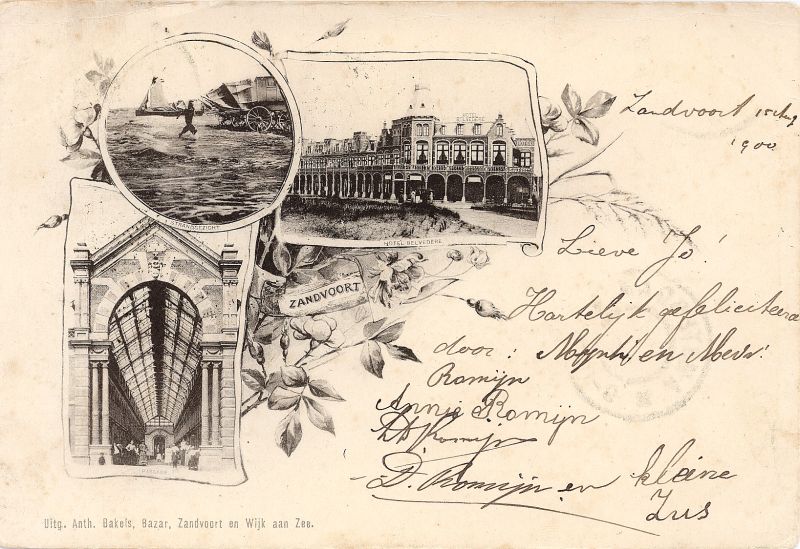 Zandvoort 15 Aug
1900
STRANDGEZICHT
HOTEL BELVEDERE
Lieve Jo!
ZANDVOORT
Hartelijk gefeliciteerd
door: en Mevr:
Romijn
Annie Romijn
Romijn
D. Romijn en kleine
Zus
PASSAGE
Uitg. Anth. Bakels, Bazar, Zandvoort en Wijk aan Zee.